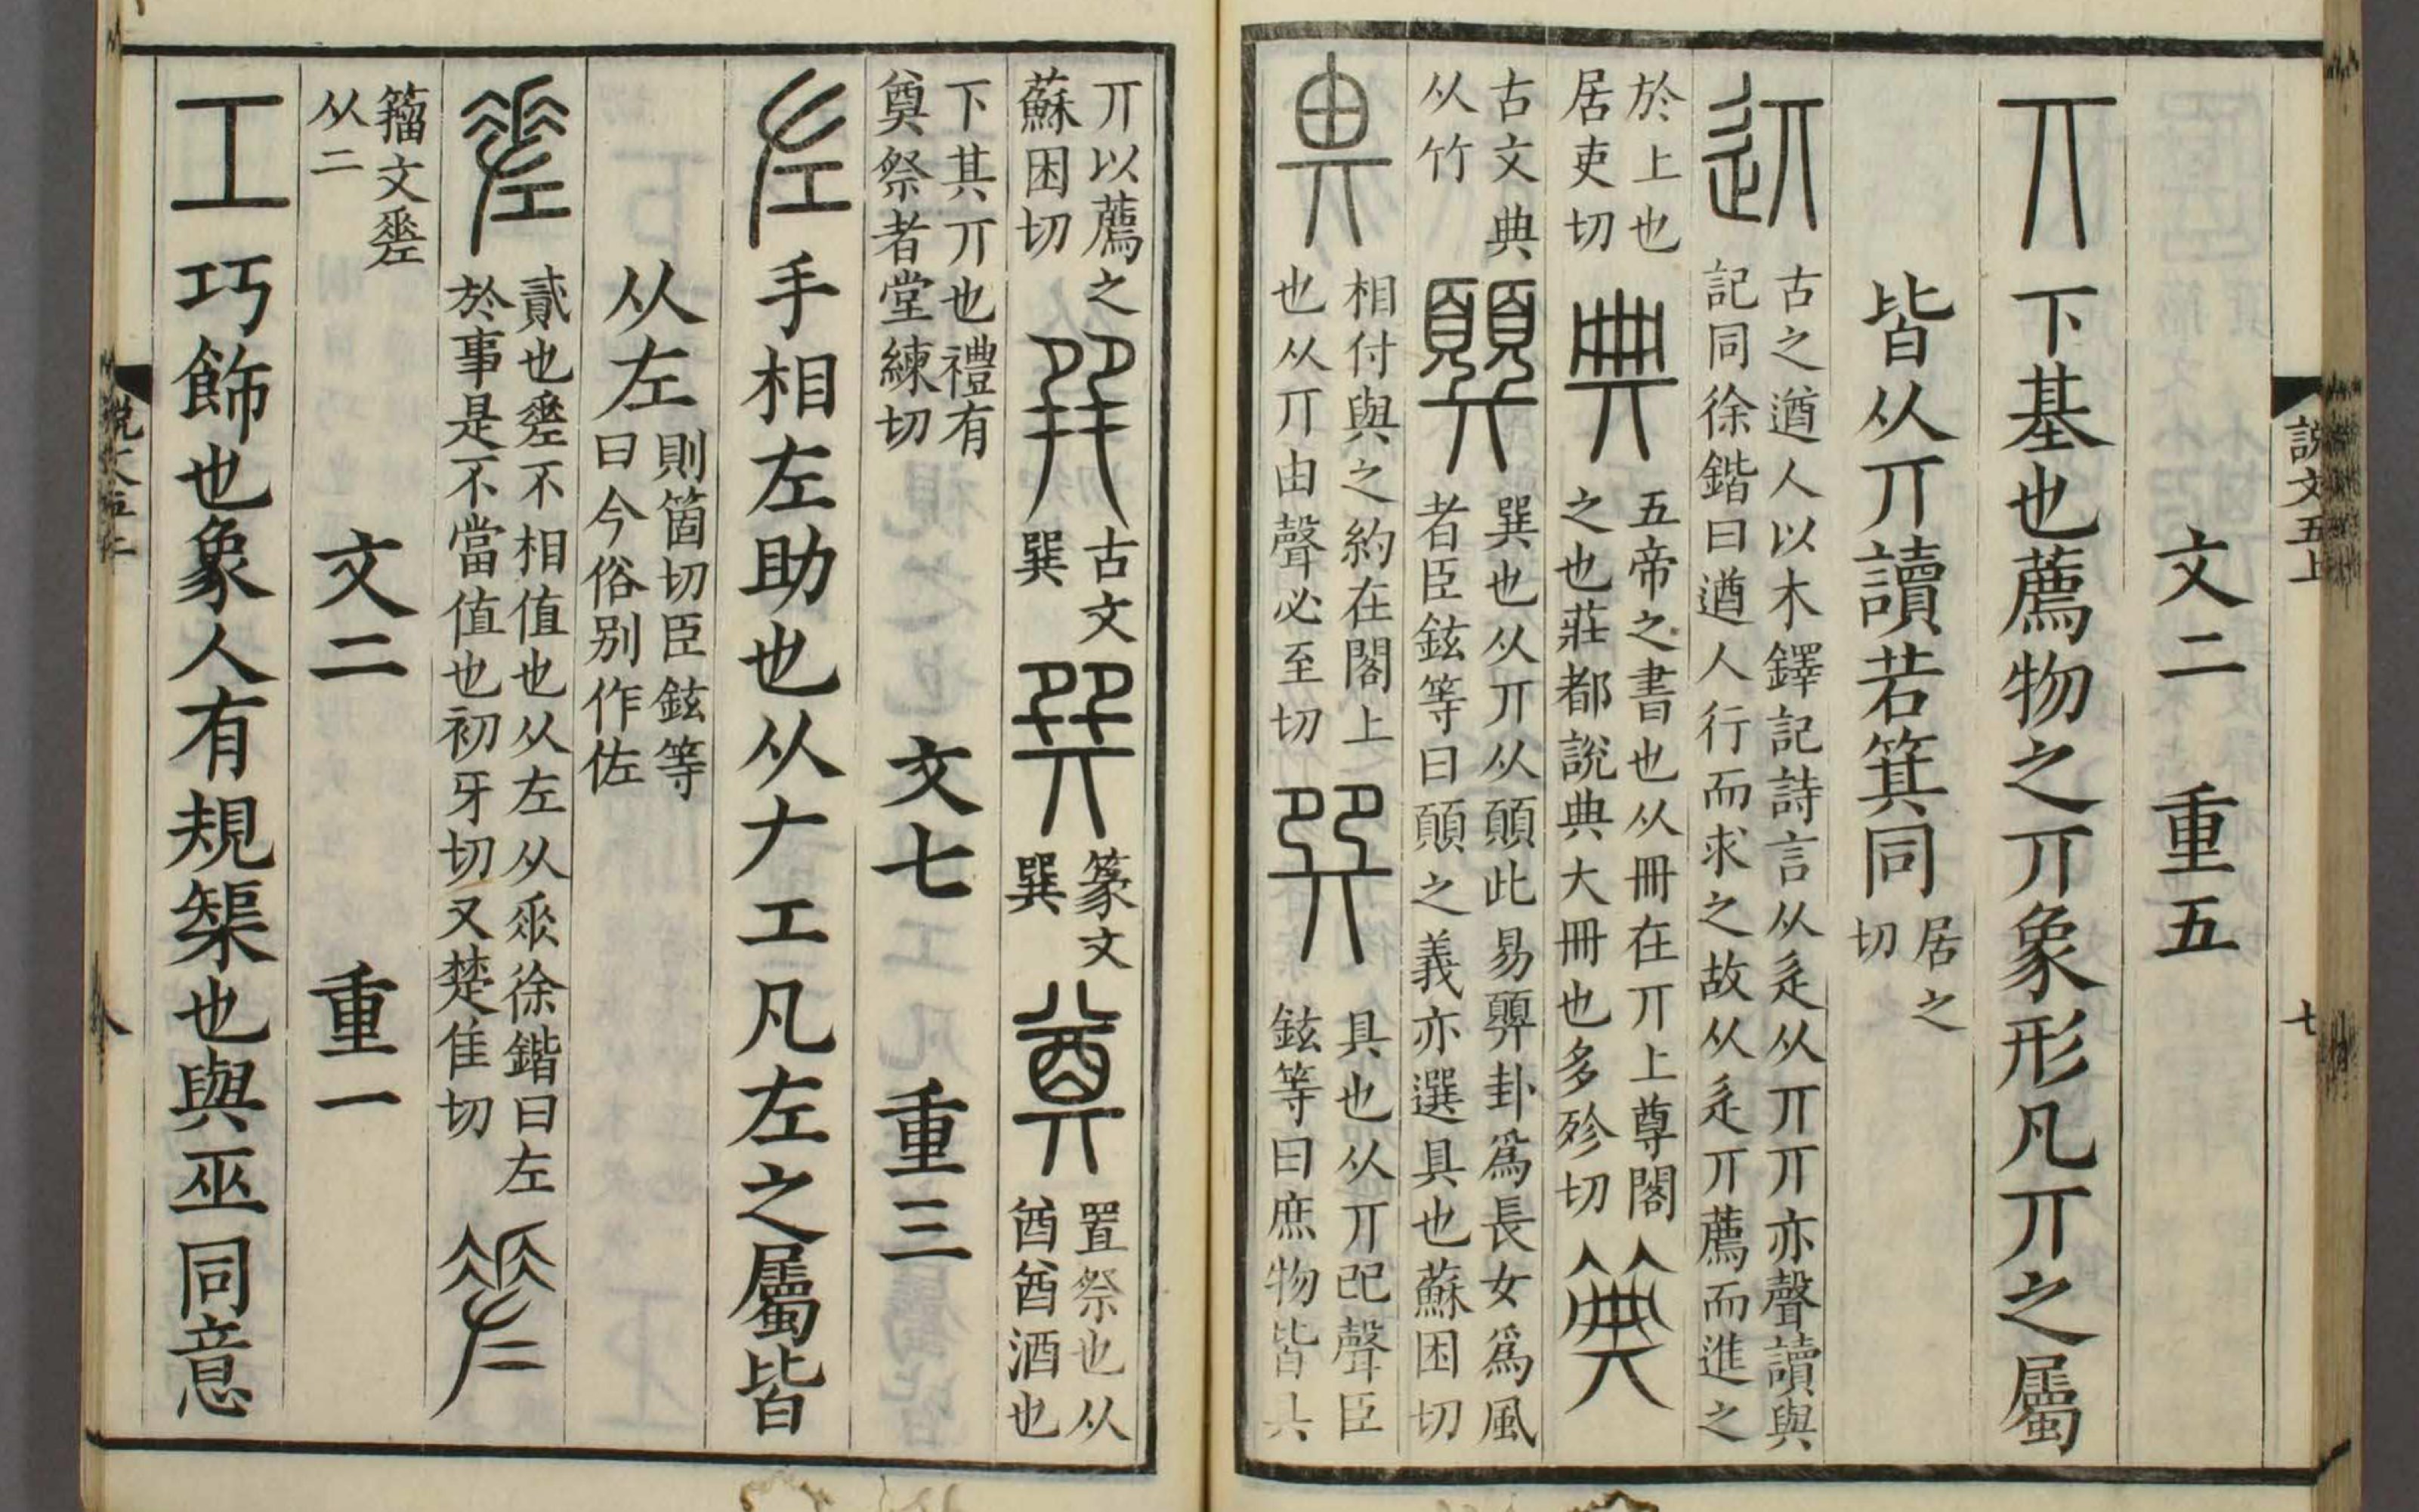 說文五上 七
文二 重五
丌 下基也薦物之丌象形凡丌之屬
皆从丌讀若箕同 居之切
䢋 古之遒人以木鐸記詩言从辵从丌丌亦聲讀與記同徐鍇曰遒人行而求之故从辵丌薦而進之
於上也居吏切 典 五帝之書也从冊在丌上尊閣之也莊都說典大冊也多殄切 箕
古文典从竹 顨 巽也从丌从此易顨卦爲長女爲風者臣鉉等曰之義亦選具也蘇困切
畀 相付與之約在閣上也从丌由聲必至切 巽 具也从丌𠨎聲臣鉉等曰庶物皆具
丌以薦之蘇困切 巽 古文巽 巽 篆文巽 奠 置祭也从酋酋酒也
下其丌也禮有奠祭者堂練切 文七 重三
左 手相左助也从𠂇工凡左之屬皆
从左 則箇切臣鉉等曰今俗别作佐
差 貳也差不相值也从左从𠂹徐鍇曰左於事是不當值也初牙切又楚隹切 差
籀文差从二 文二 重一
工 巧飾也象人有規榘也與巫同意
說文五上 八